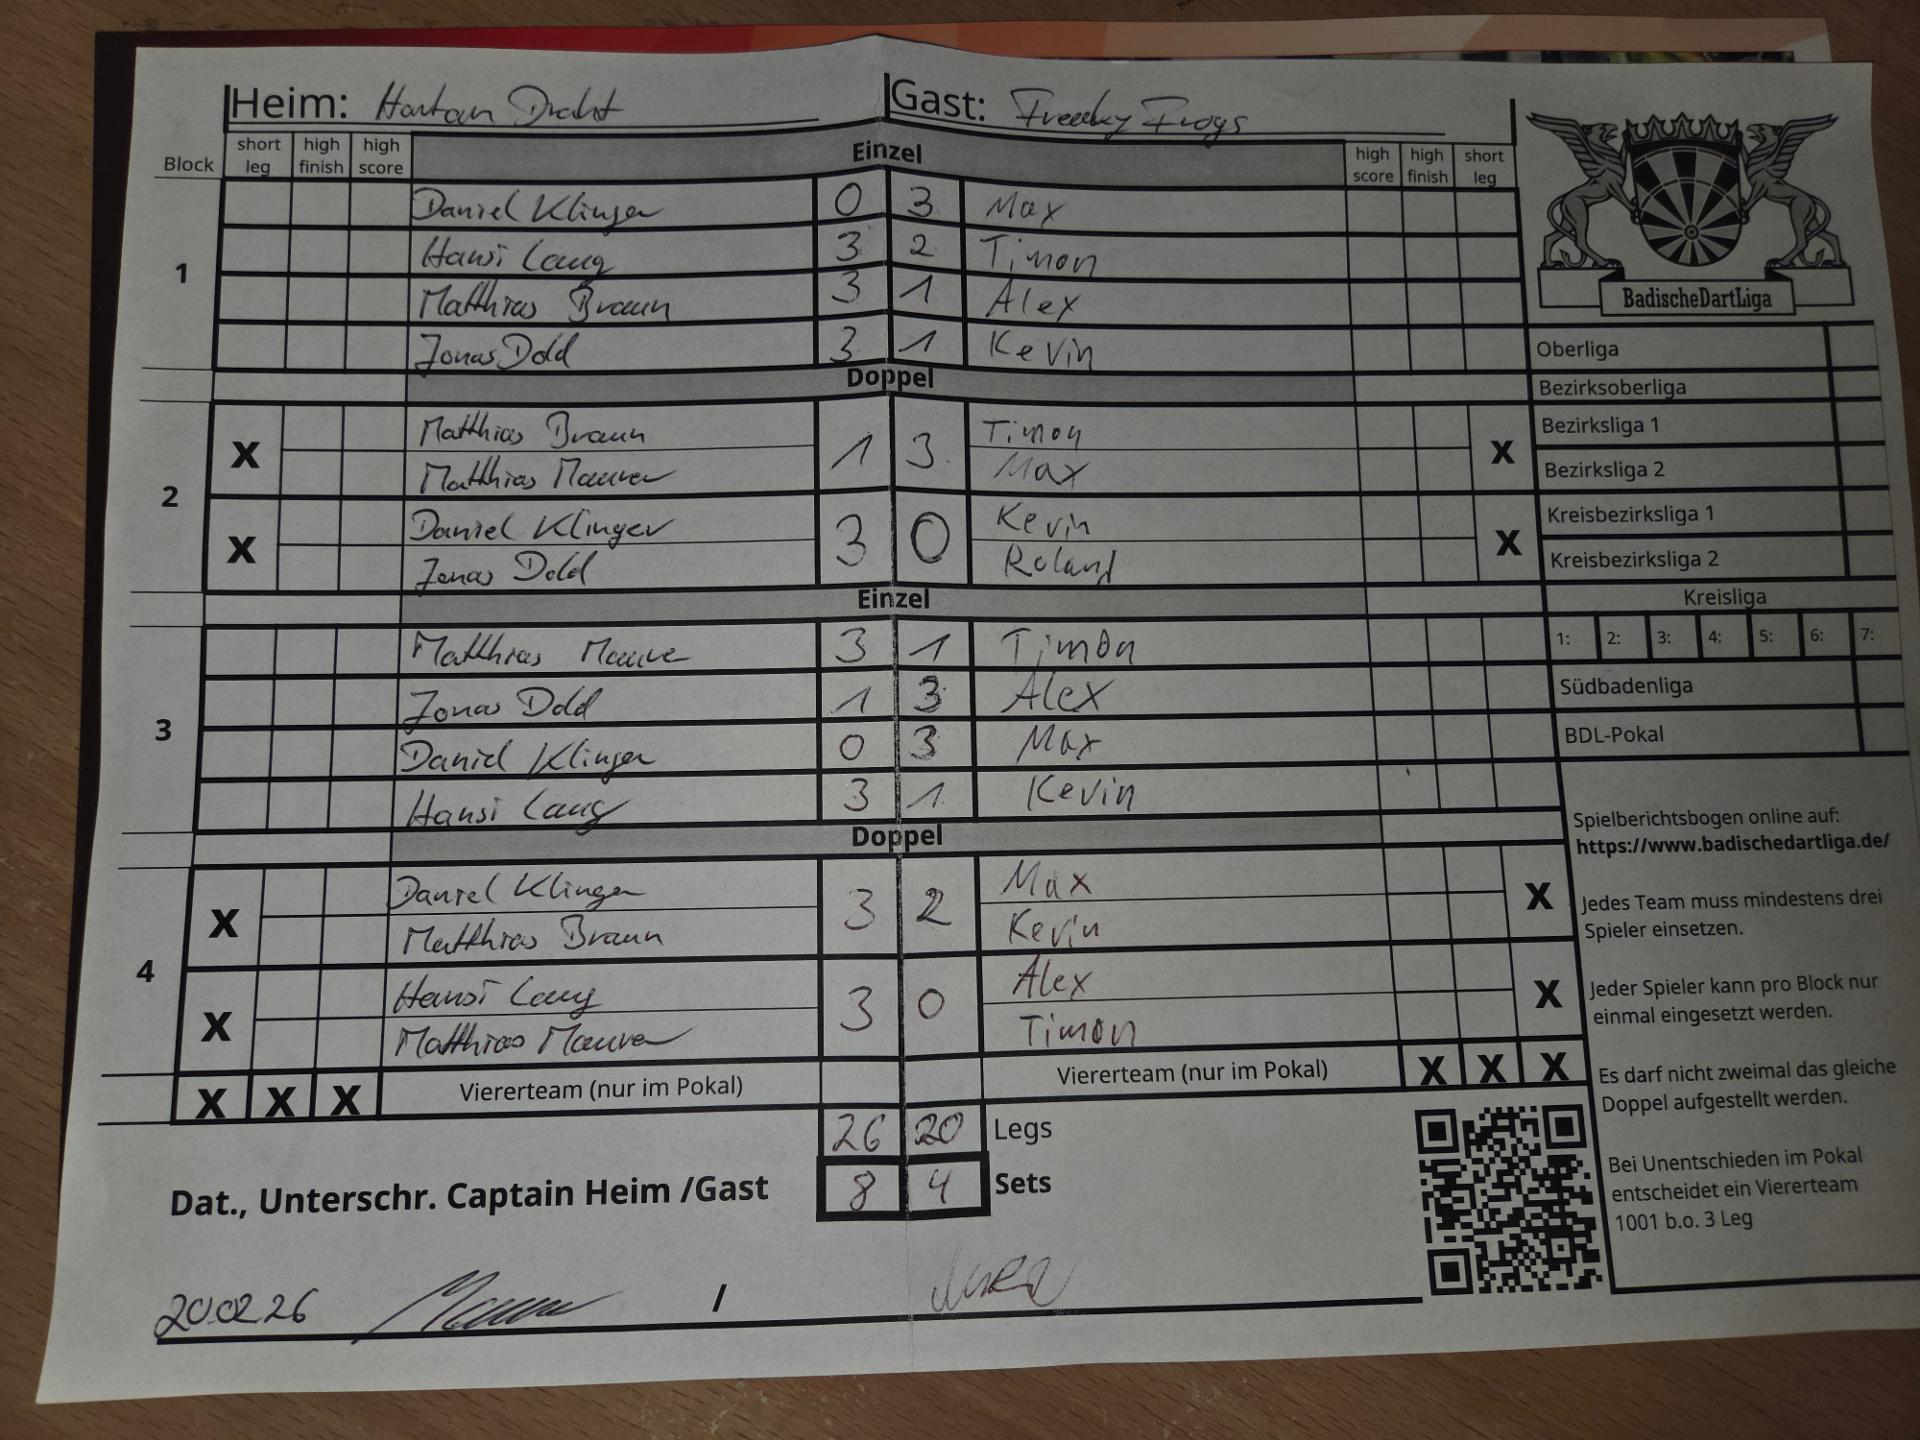 Heim: Hartan Draht Gast: Freaky Frogs
Block short leg high finish high score Einzel high score high finish short leg
1
Daniel Klinger 0 3 Max
Hansi Lang 3 2 Timon
Matthias Braun 3 1 Alex
Jonas Dold 3 1 Kevin
Doppel
2
X Matthias Braun 1 3 Timon X
Matthias Maurer Max
X Daniel Klinger 3 0 Kevin X
Jonas Dold Roland
Einzel
3
Matthias Maurer 3 1 Timon
Jonas Dold 1 3 Alex
Daniel Klinger 0 3 Max
Hansi Lang 3 1 Kevin
Doppel
4
X Daniel Klinger 3 2 Max X
Matthias Braun Kevin
X Hansi Lang 3 0 Alex X
Matthias Maurer Timon
X X X Viererteam (nur im Pokal) Viererteam (nur im Pokal) X X X
26 20 Legs
8 4 Sets
Dat., Unterschr. Captain Heim /Gast
20.02.26 /
BadischeDartLiga
Oberliga
Bezirksoberliga
Bezirksliga 1
Bezirksliga 2
Kreisbezirksliga 1
Kreisbezirksliga 2
Kreisliga
1: 2: 3: 4: 5: 6: 7:
Südbadenliga
BDL-Pokal
Spielberichtsbogen online auf:
https://www.badischedartliga.de/
Jedes Team muss mindestens drei
Spieler einsetzen.
Jeder Spieler kann pro Block nur
einmal eingesetzt werden.
Es darf nicht zweimal das gleiche
Doppel aufgestellt werden.
Bei Unentschieden im Pokal
entscheidet ein Viererteam
1001 b.o. 3 Leg